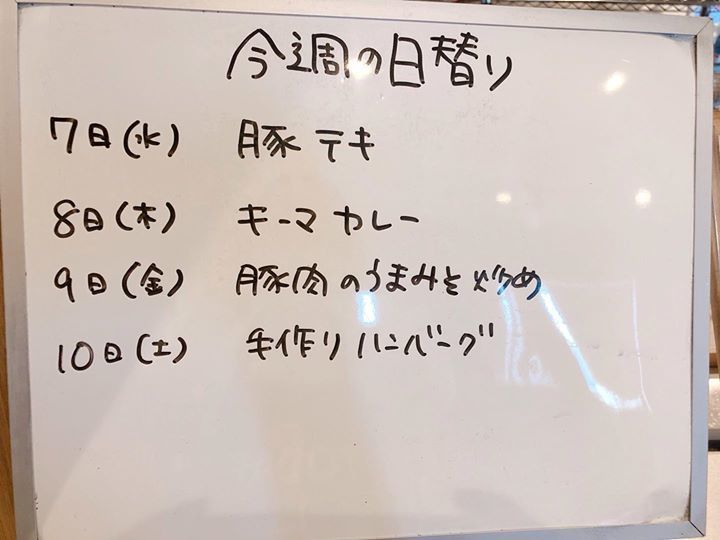 今週の日替り
7日(水) 豚テキ
8日(木) キーマカレー
9日(金) 豚肉のうまみそ炒め
10日(土) 手作りハンバーグ